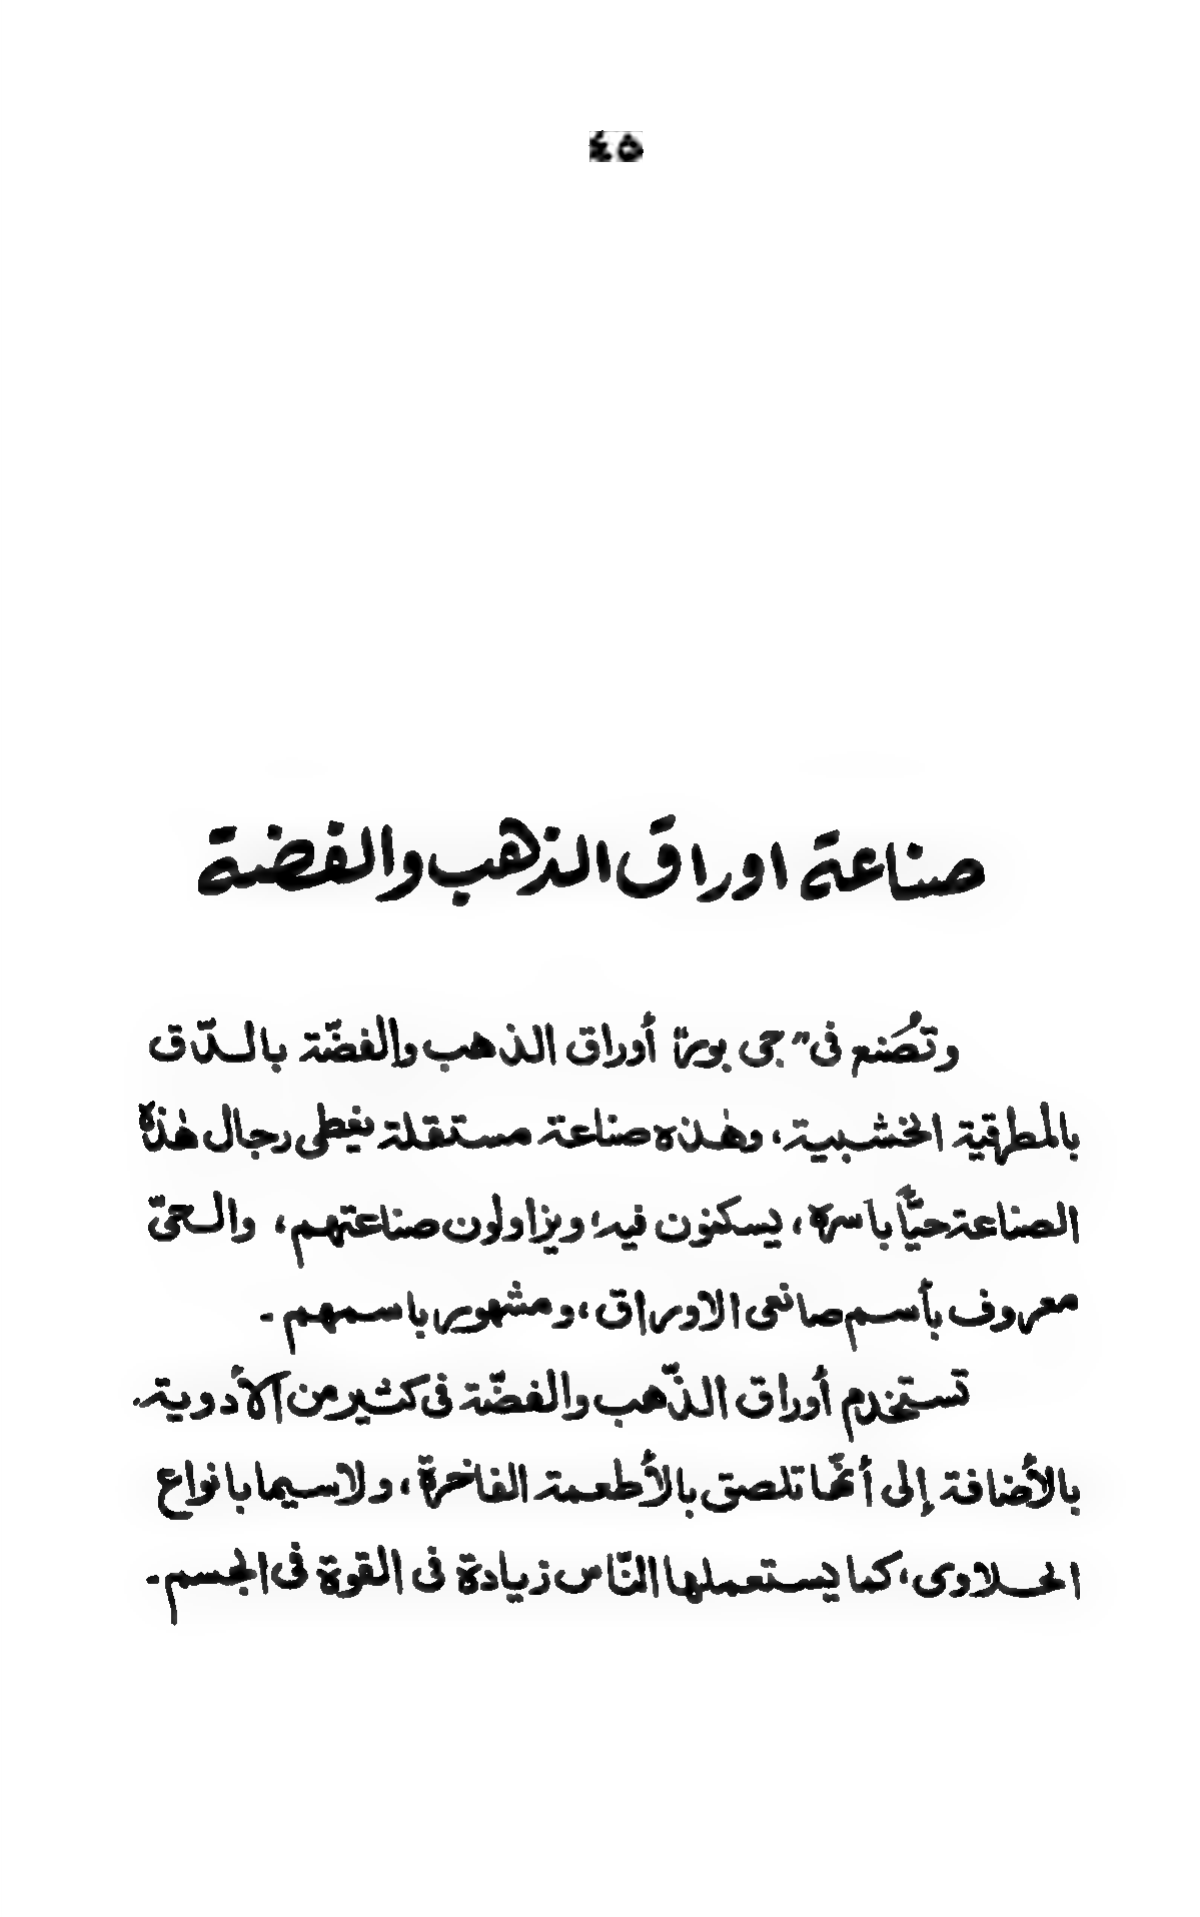 ٤٥
صناعة اوراق الذهب والفضة
وتصُنع فى "جى بورة أوراق الذهب والفضّة بالدّق
بالمطرقية الخشبية، وهٰذه صناعة مستقلة يغطى رجال هٰذه
الصناعة حيّاً باسره، يسكنون فيه، ويزاولون صناعتهم، والحىّ
معروف بأسم صانعى الاوراق، ومشهور باسمهم -
تستخدم أوراق الذّهب والفضّة فى كثير من الأدوية،
بالأضافة إلى أنّها تلصق بالأطعمة الفاخرة، ولاسيما بانواع
الحلاوى، كما يستعملها النّاس زيادة فى القوة فى الجسم -